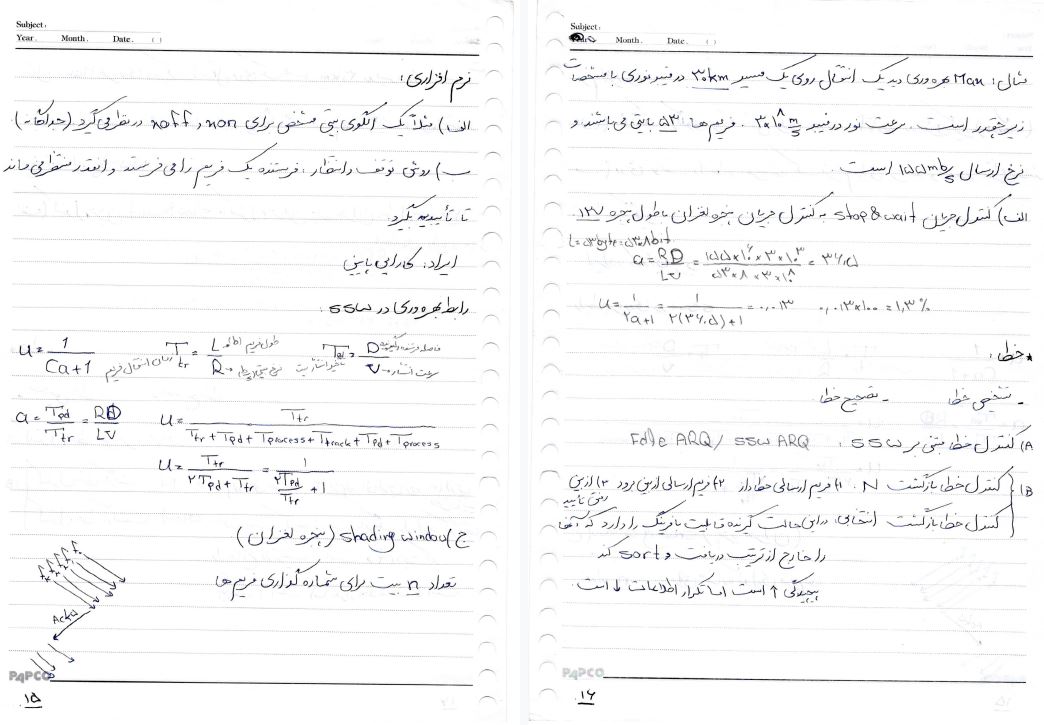 Subject:
Year. Month. Date. ( )
نرم افزاری:
الف) مثلاً یک الگوی بیتی مشخص برای xon و xoff در نظر می گیرد (جداگانه)
ب) روش توقف و انتظار: فرستنده یک فریم را می فرستد و آنقدر منتظر می ماند
تا تأییدیه بگیرد.
ایراد: کارایی پایین
رابط بهره وری در SSW:
U = 1 / Ca+1 زمان انتقال فریم Ttr = L / R طول فریم Tpd = D / V سرعت انتشار
a = Tpd / Ttr = RD / LV
U = Ttr / Ttr + Tpd + Tprocess + Ttrack + Tpd + Tprocess
U = Ttr / ۲Tpd + Ttr = 1 / ۲Tpd/Ttr + 1
ج) shading window (پنجره لغزان)
تعداد n بیت برای شماره گذاری فریم ها
f f f f f
Ack
PAPCO
۱۵
Subject:
Year. Month. Date. ( )
مثال: Man بهره وری دید یک انتقال روی یک مسیر ۳۰km در فیبر نوری با مشخصات
زیر چقدر است. سرعت نور در فیبر ۳*۱۰^۸ m/s. فریم ها ۵۳ بایتی می باشند و
نرخ ارسال ۱۵۵mb/s است.
الف) کنترل جریان stop & wait ب کنترل جریان پنجره لغزان با طول پنجره ۱۲۷.
L = ۵۳byte = ۵۳*۸bit
a = RD / LV = ۱۵۵*۱۰^۶ * ۳*۱۰^۳ / ۵۳*۸*۳*۱۰^۸ = ۳۶,۵
U = 1 / ۲a+1 = 1 / ۲(۳۶,۵)+1 = ۰,۰۱۳ ۰,۰۱۳*۱۰۰ = ۱,۳%
* خطا:
- تشخیص خطا - تصحیح خطا
A) کنترل خطا مبنی بر SSW: Edle ARQ / SSW ARQ
B) کنترل خطا بازگشت N: ۱) فریم ارسالی خطادار ۲) فریم ارسالی از بین برود ۳) از بین رفتن تأیید
کنترل خطا بازگشت انتخابی: در این حالت گیرنده قابلیت بافرینگ را دارد که آنها
را خارج از ترتیب دریافت و sort کند
پیچیدگی ↑ است اما تکرار اطلاعات ↓ است.
PAPCO
۱۶